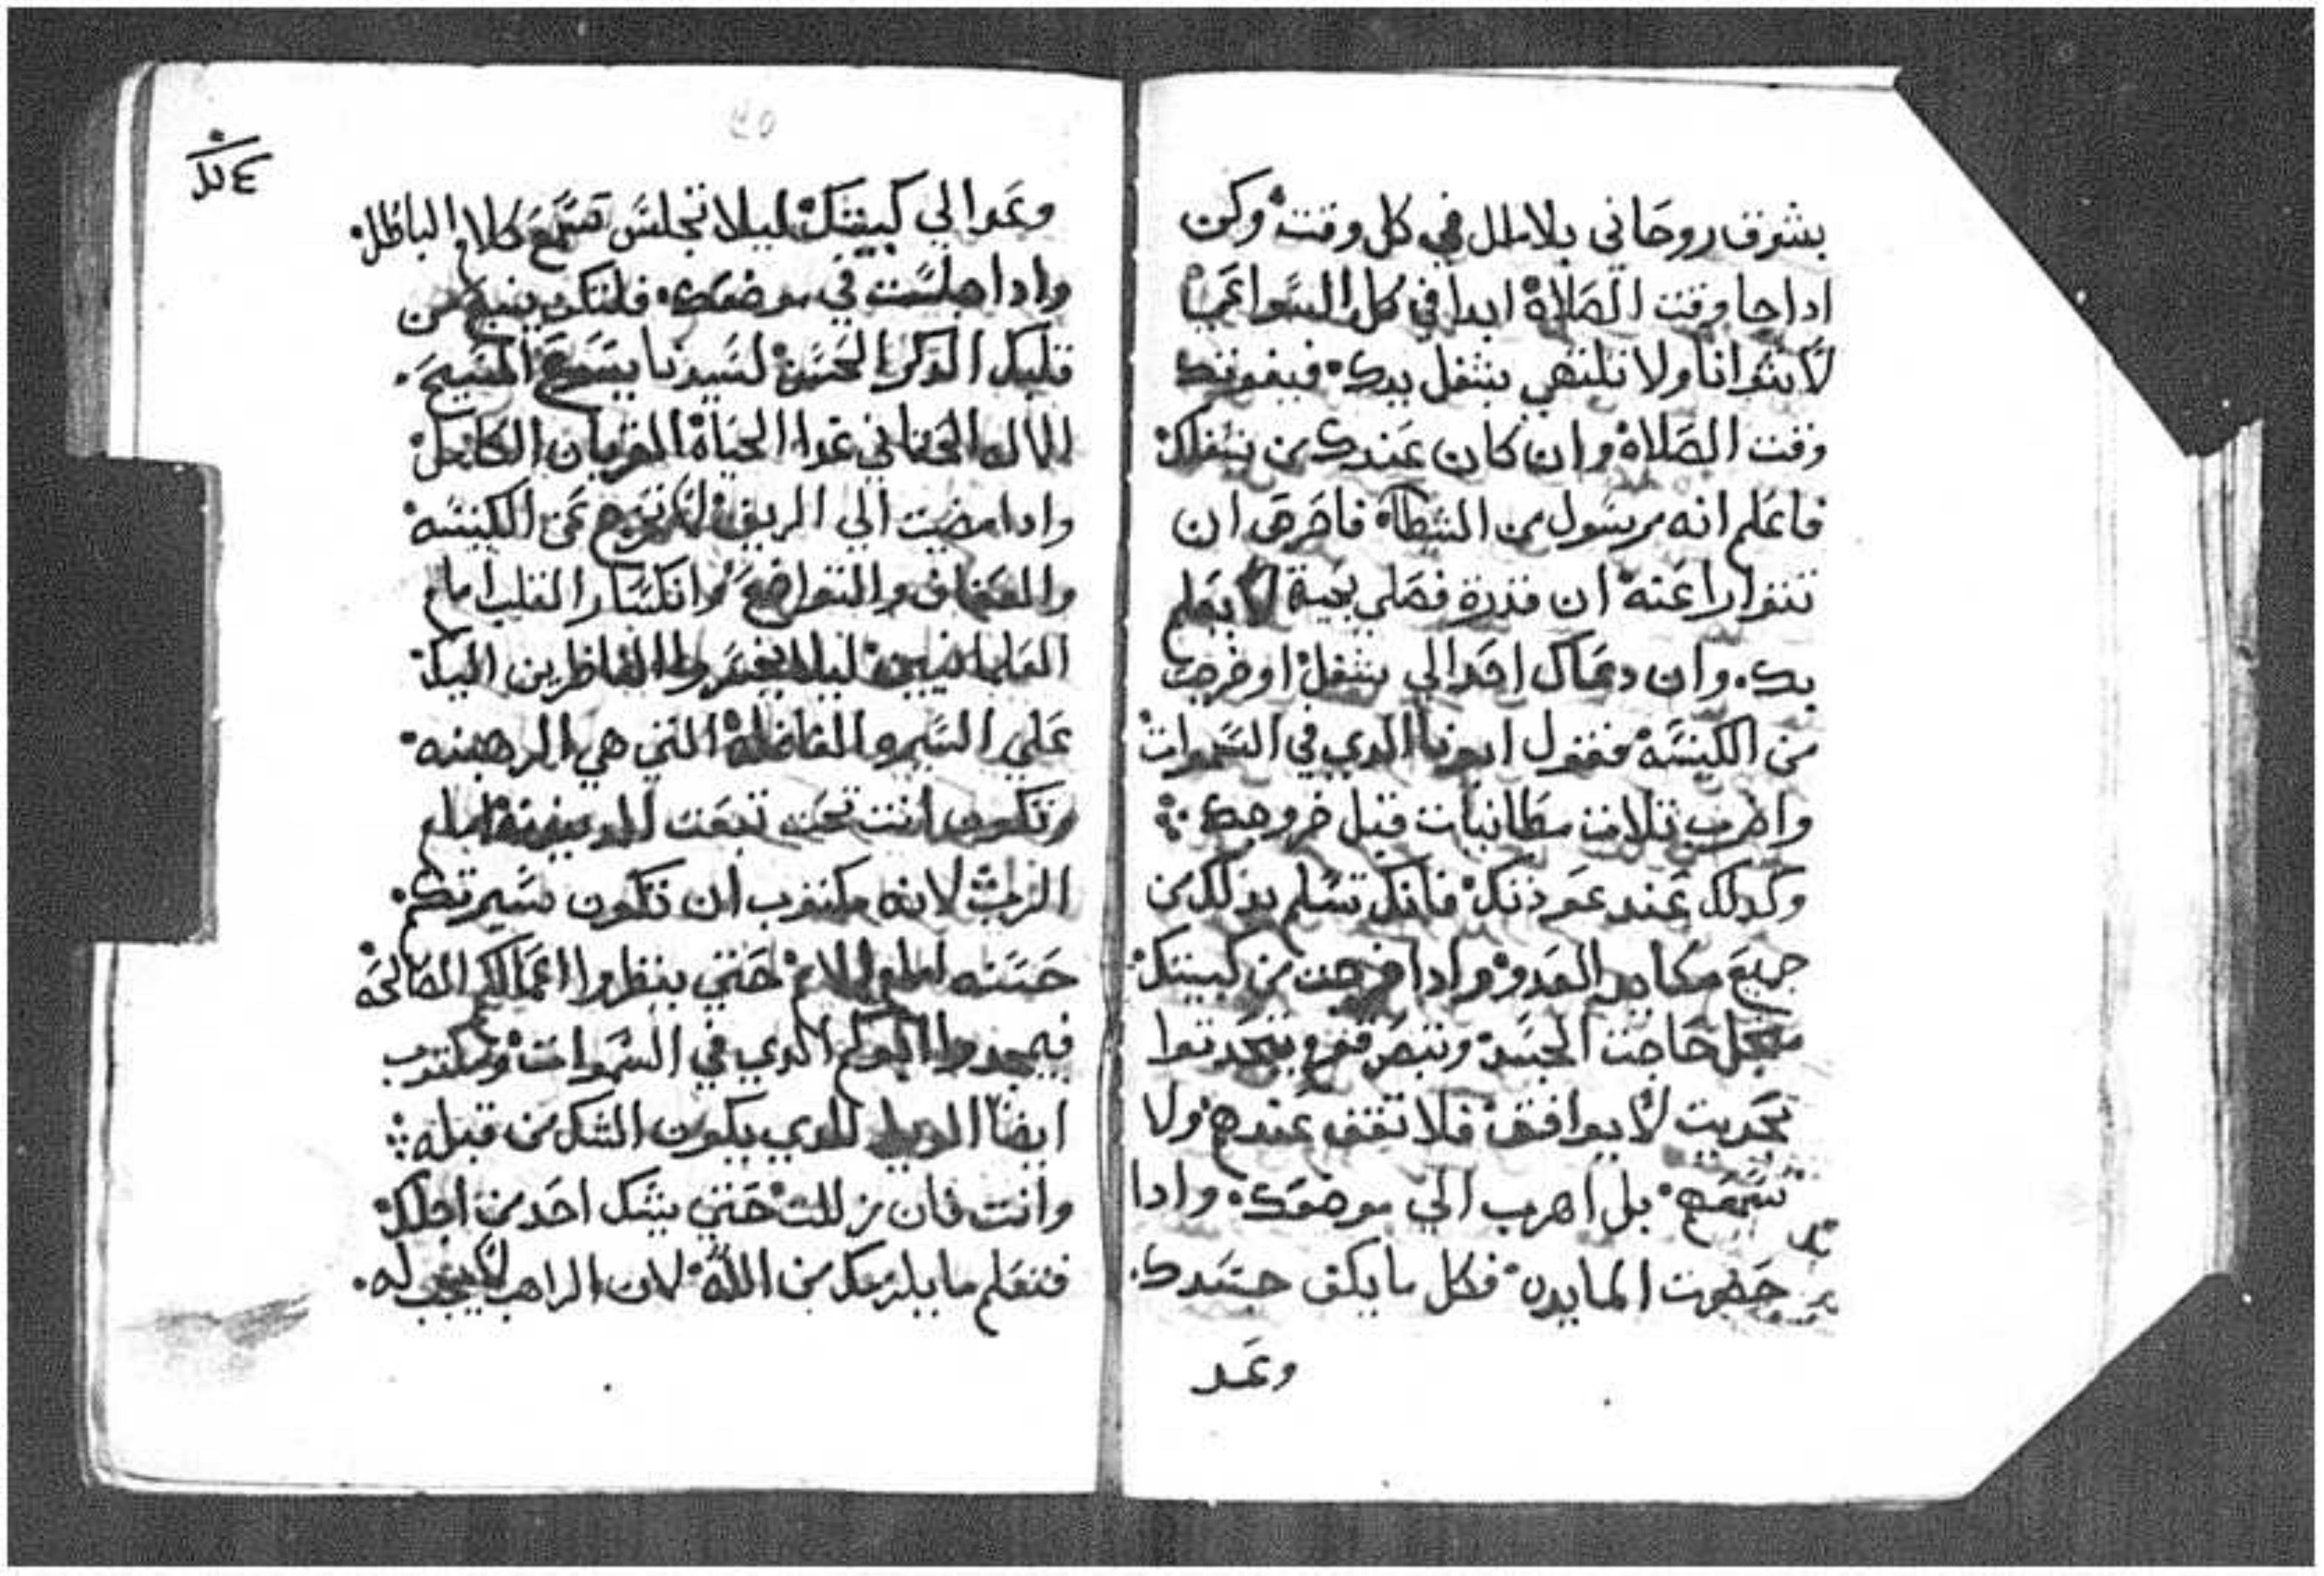 بشوق روحاني بلا ملل في كل وقت وكن
ادا جا وقت الصلاة ابدا في كل السواعي
لا تتوانا ولا تلتهي بشغل يدك فيفوتك
وقت الصلاة وان كان عندك من يشغلك
فاعلم انه رسول من الشطاه فاحرص ان
تتوارا عنه ان قدرة فصلي بحية لا يعلم
بك وان دعاك احد الي شغل او خرجت
من الكنيسه فقول ابونا الدي في السموات
واضرب تلات مطانيات قبل خروجك
وكدلك عند عودتك فانك تسلم بدلك من
جميع مكايد العدو وادا خرجت من كبيتك
حاجت الجسد وتبصر قوم يتحدتوا
بحديت لا يوافق فلا تقف عندهم ولا
تسمع بل اهرب الي موضعك وادا
حضرت المايده فكل ما يكف جسدك
وعد
٥٠
وعد الي كبيتك ليلا تجلس تسمع كلام الباطل
وادا جلست في موضعك فلتكن ينبع من
قلبك الدكر الحسن لسيدنا يسوع المسيح
الماك الحقاني غدا الحياة القربان الكامل
وادا مضيت الي الريف لا تخرج عن الكنيسه
والعفاف والتواضع وانكسار القلب امام
العلمانيين ليلا يخسروا الناظرين اليك
علي السيره الفاضلة التي هي الرهبنه
وتكون انت تحت تبعت المدينونة امام
الرب لانه مكتوب ان تكون سيرتكم
حسنه امام حتي ينظروا اعمالكم الصالحه
فيمجدوا ابوكم الدي في السموات ومكتوب
ايضا الويل للدي يكون الشك من قبله
وانت فان زللت حتي يشك احد من اجلك
فتعلم ما يلزمك من الله لان الراهب لا يجب له